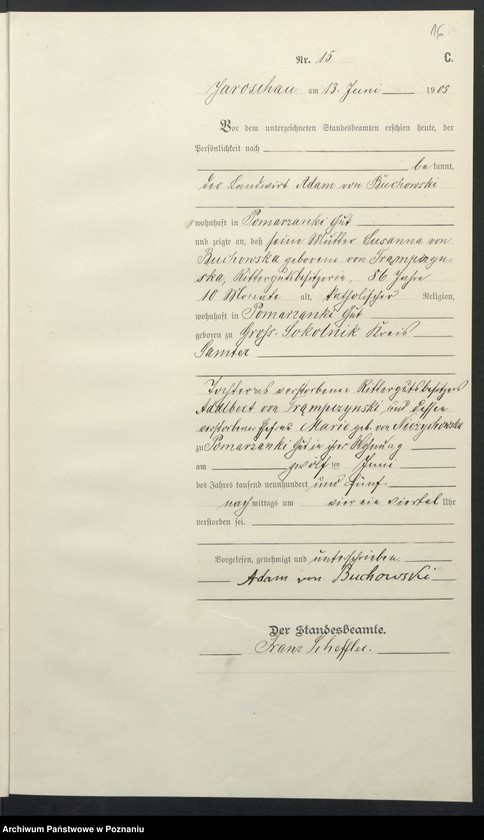 16
Nr. 15
C.
Jaroschau am 13. Juni 1905
Vor dem unterzeichneten Standesbeamten erschien heute, der
Persönlichkeit nach
bekannt,
der Landwirt Adam von Buchowski
wohnhaft in Pomarzanki Gut
und zeigte an, daß seine Mutter Susanna von
Buchowska geborene von Trampczyn-
ska, Rittergutsbesitzerin, 86 Jahre
10 Monate alt, katholischer Religion,
wohnhaft in Pomarzanki Gut
geboren zu Groß-Sokolnik Kreis
Samter
Tochter des verstorbenen Rittergutsbesitzers
Adalbert von Trampczynski und dessen
verstorbener Ehefrau Marie geb. von Niezychowska
zu Pomarzanki Gut in ihrer Wohnung
am zwölften Juni
des Jahres tausend neunhundert und fünf
nachmittags um vier ein viertel Uhr
verstorben sei.
Vorgelesen, genehmigt und unterschrieben
Adam von Buchowski
Der Standesbeamte.
Franz Scheffler.
Archiwum Państwowe w Poznaniu